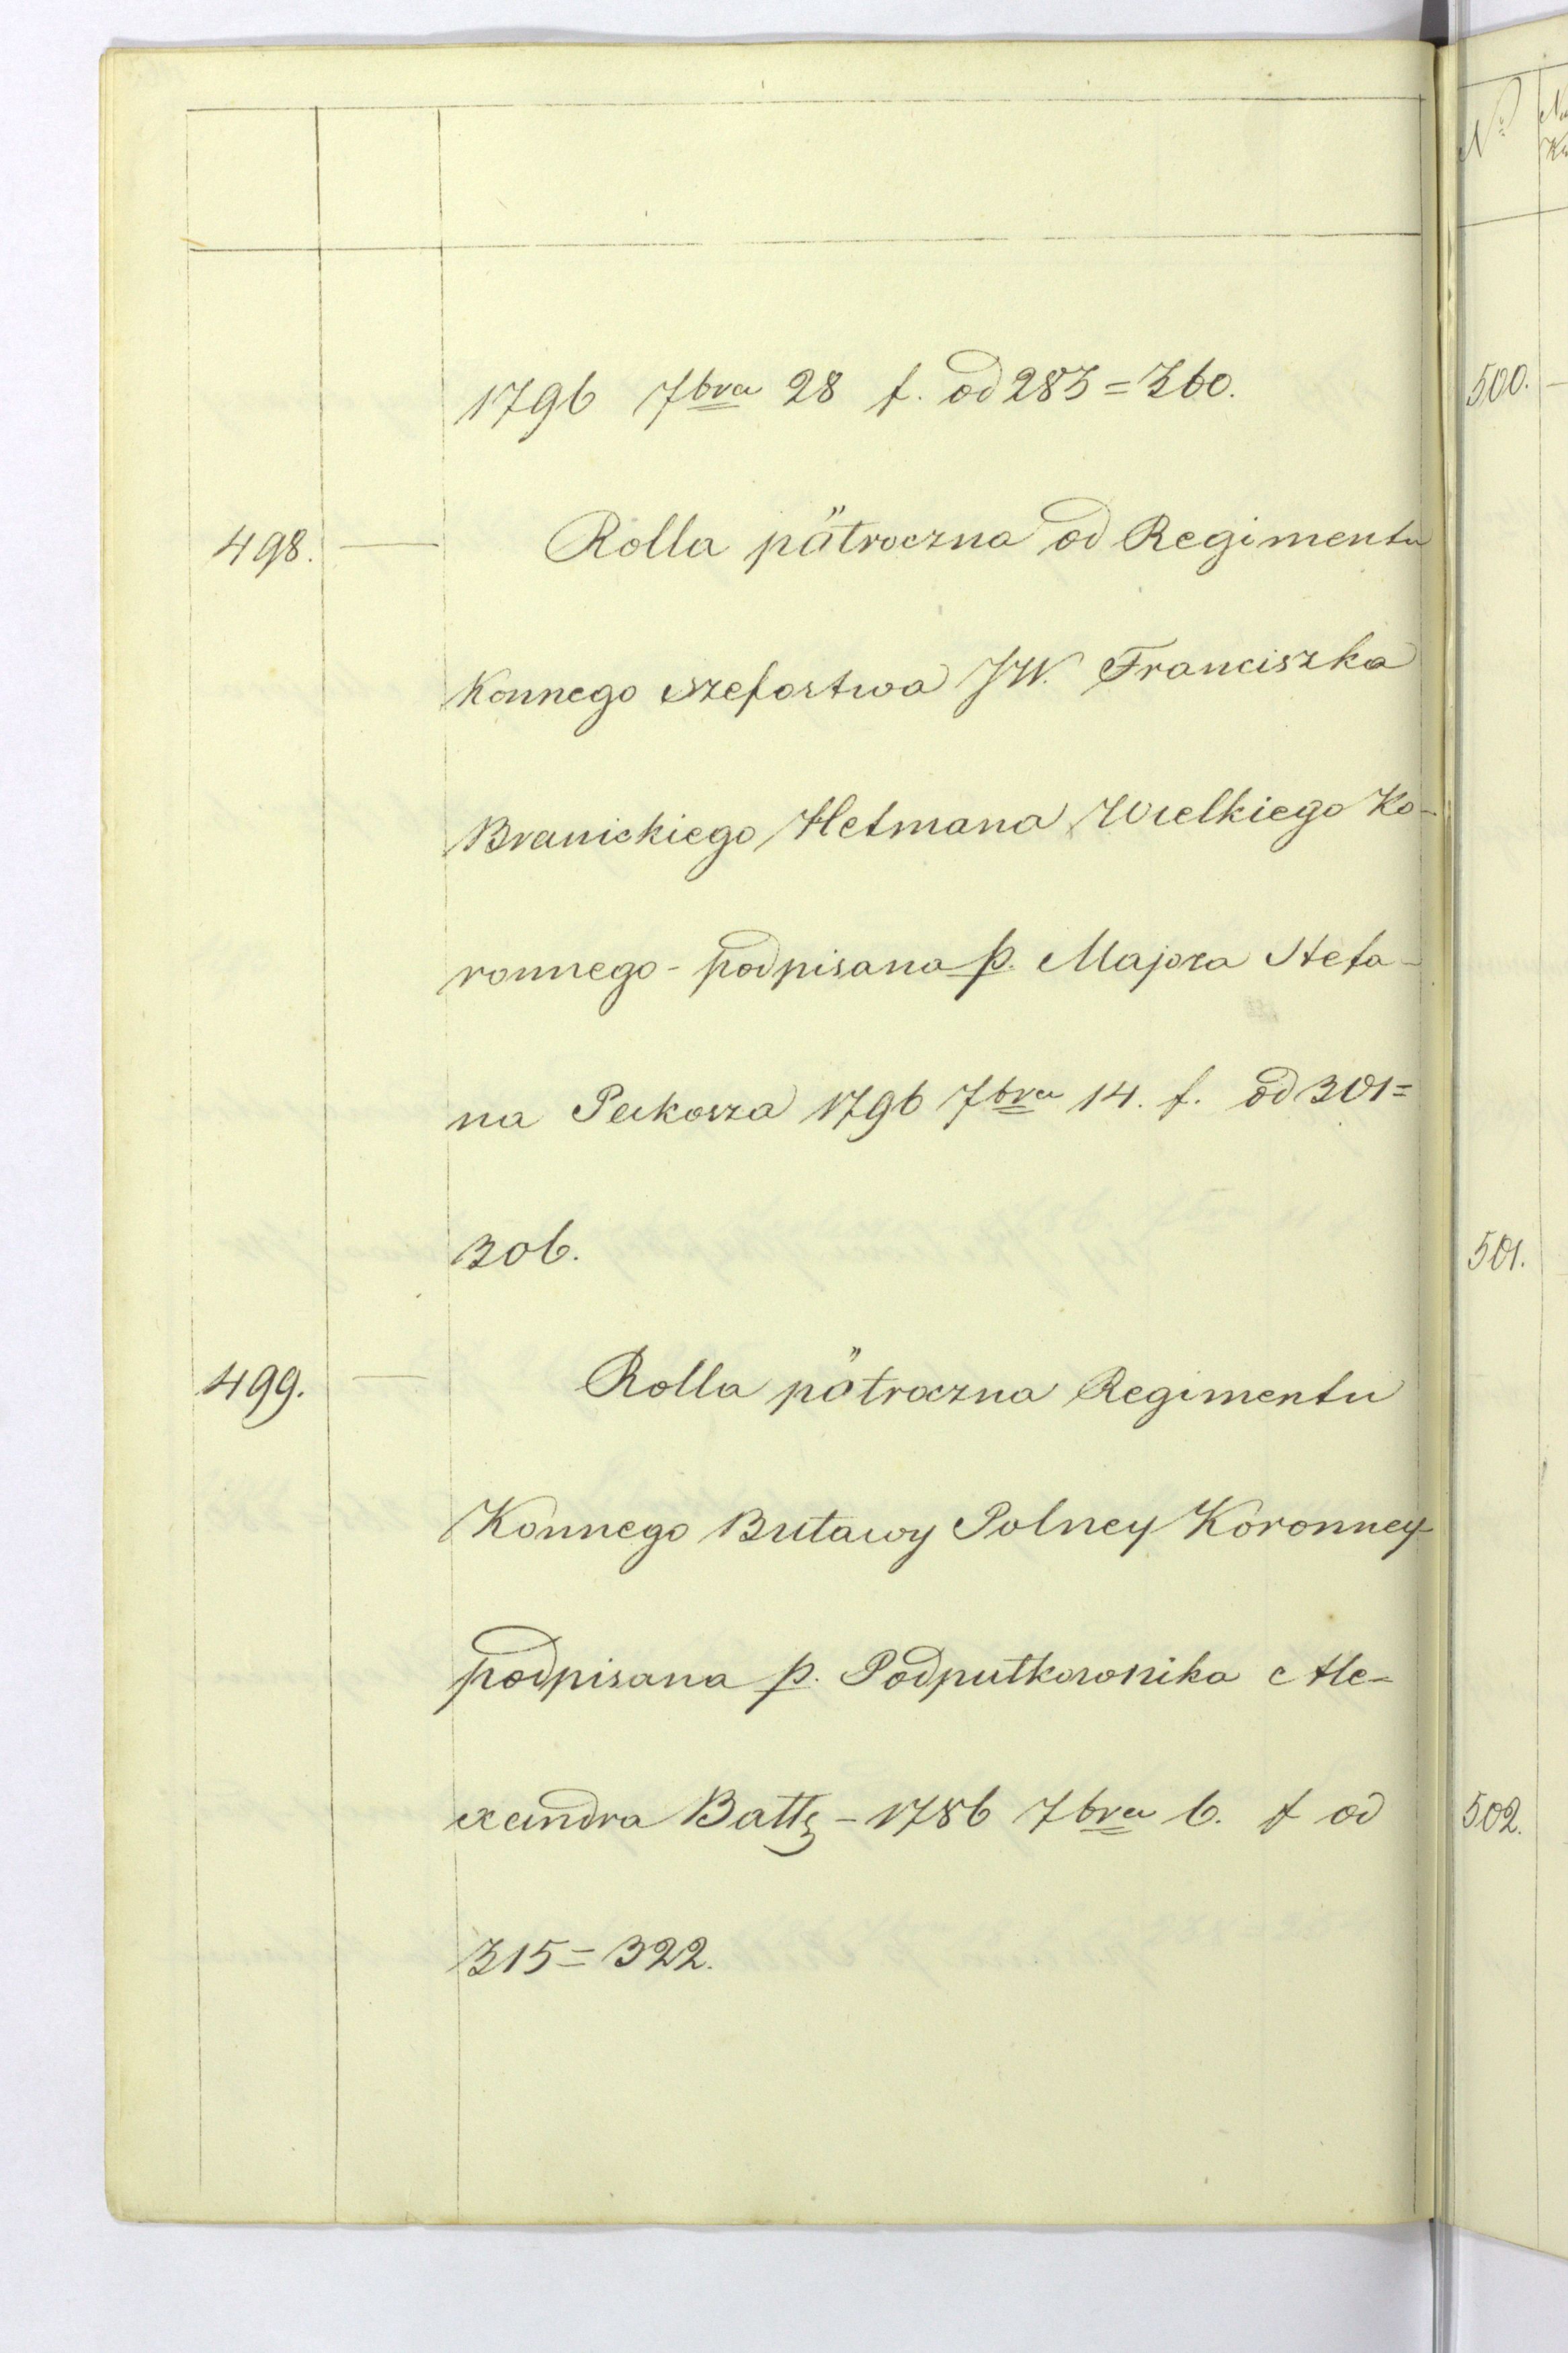 1796 7bra 28 f. od 283=360.
498. — Rolla pötroczna od Regimentu
Konnego szefostwa JW. Franciszka
Branickiego Hetmana Wielkiego Ko-
ronnego - podpisana p. Majora Stefa-
na Peikosza 1796 7bra 14. f. od 301=
306.
499. — Rolla pötroczna Regimentu
Konnego Butawy Polney Koronney
podpisana p. Podputkownika Ale-
xandra - 1786 7bra 6. f od
315=322.
Nº
500. —
501.
502.